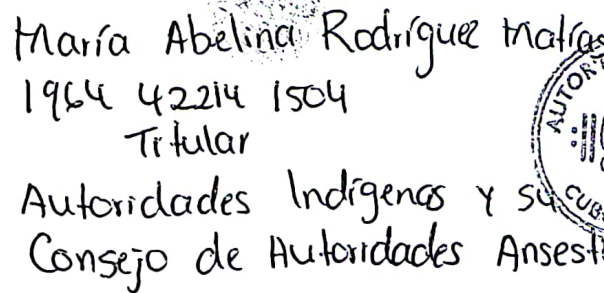 María Abelina Rodríguez Matías
1964 42214 1504
Titular
Autoridades Indígenas y su
Consejo de Autoridades